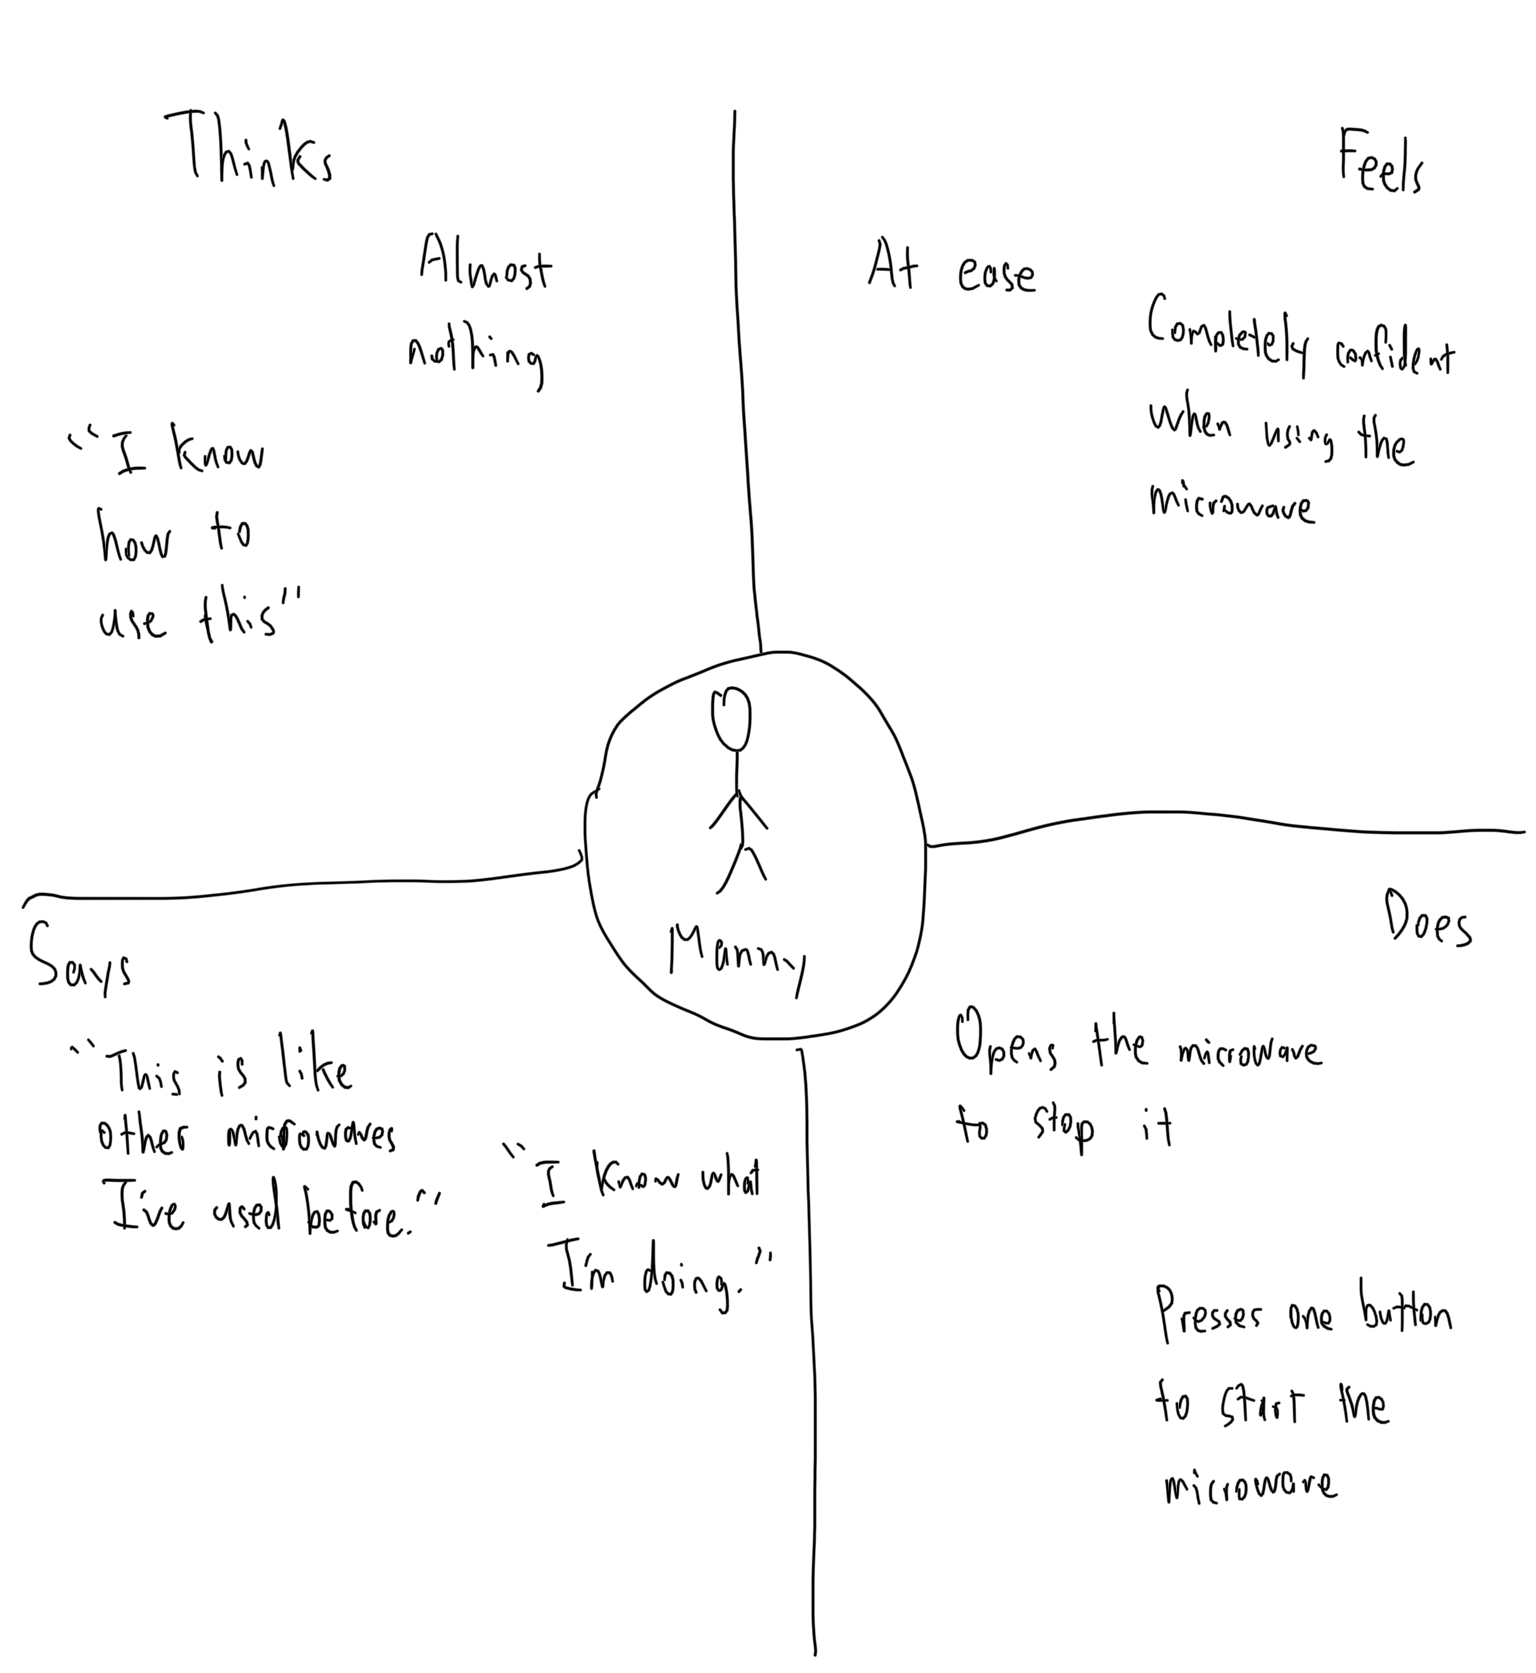 Thinks
Almost
nothing
"I know
how to
use this"
Feels
At ease
Completely confident
when using the
microwave
Manny
Says
"This is like
other microwaves
I've used before."
"I know what
I'm doing."
Does
Opens the microwave
to stop it
Presses one button
to start the
microwave